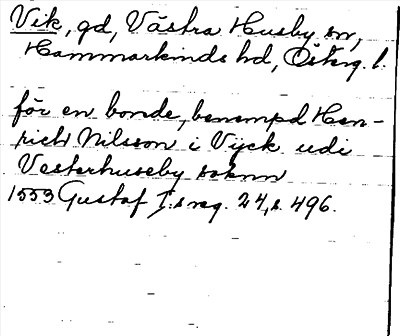 Vik, gd, Västra Husby sn,
Hammarkinds hd, Österg. l.
för en bonde, benempd Hen-
rich Nilsson i Vijck udi
Vesterhuseby soknn
1553 Gustaf I:s reg. 24, s. 496.